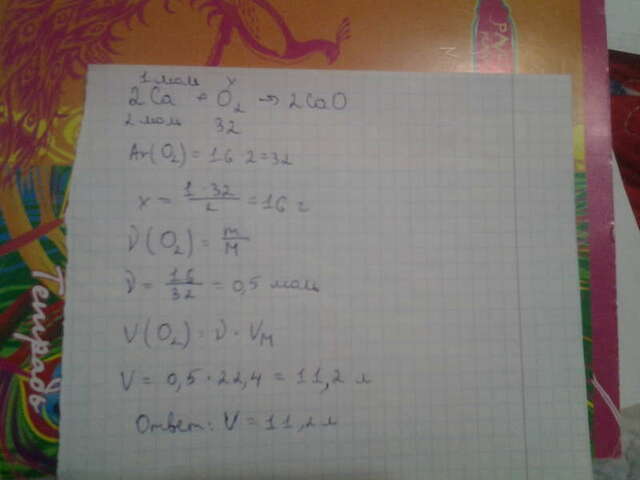 1 моль x
2Ca + O₂ → 2CaO
2 моль 32
Ar(O₂) = 16·2=32
x = 1·32/2 = 16 г
ν(O₂) = m/M
ν = 16/32 = 0,5 моль
V(O₂) = ν · Vм
V = 0,5 · 22,4 = 11,2 л
Ответ: V = 11,2 л
Тетрадь